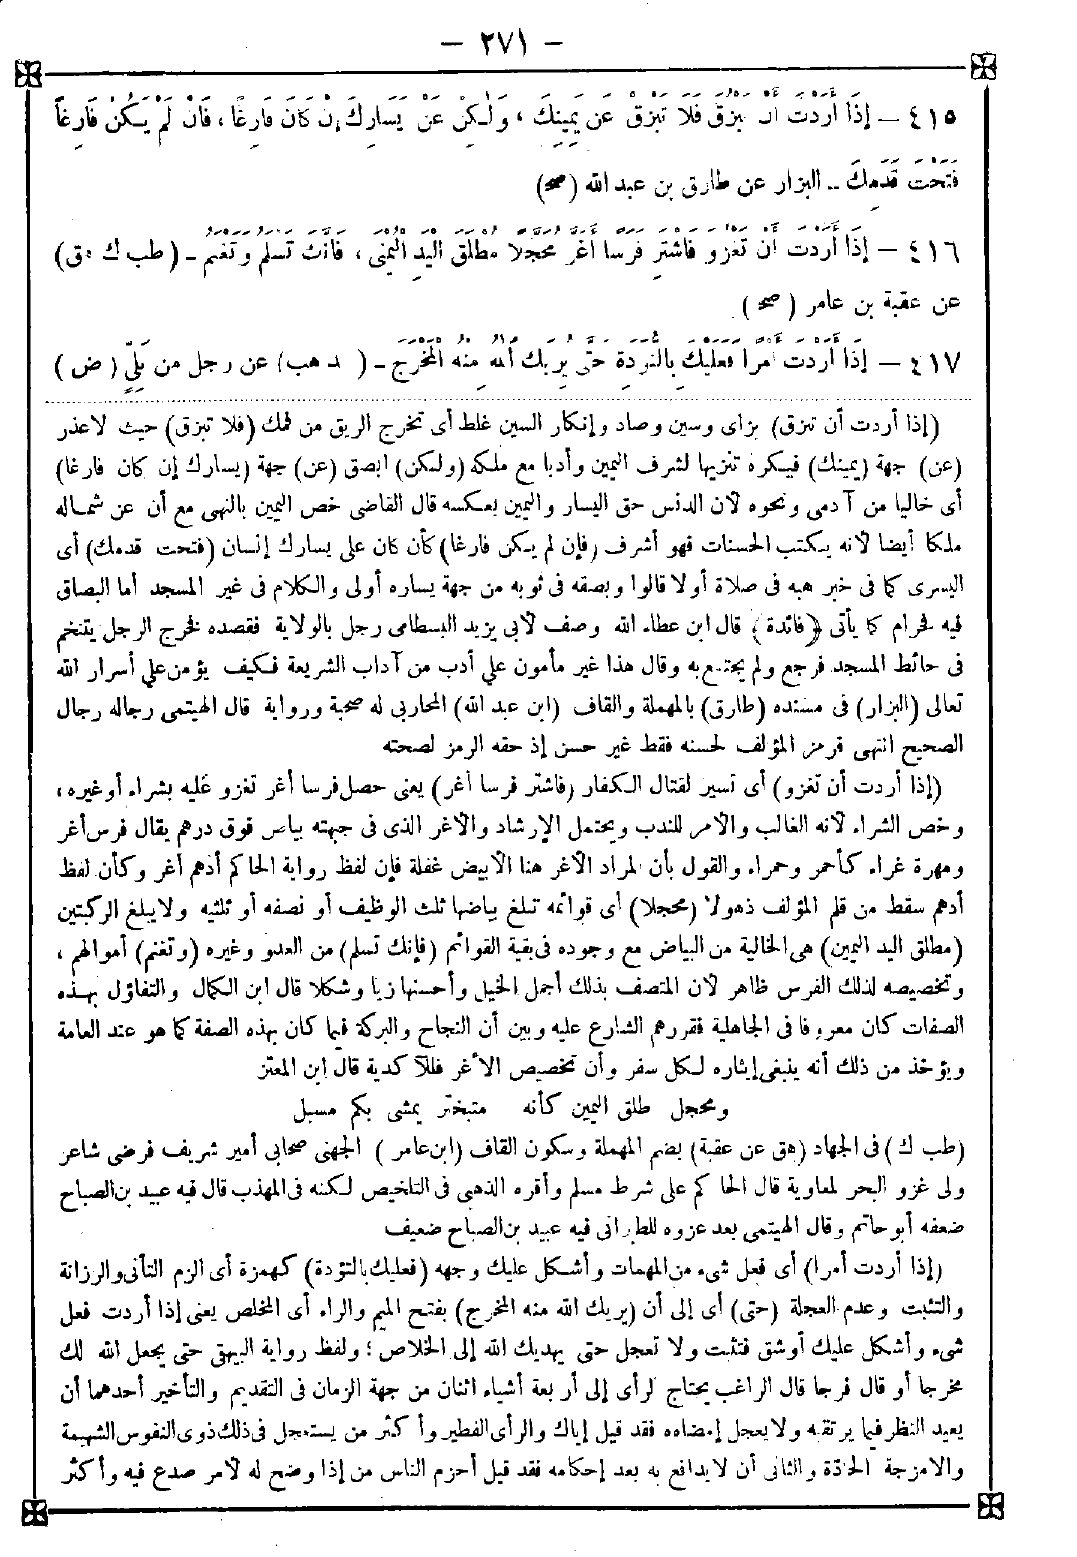 - ٢٧١ -
٤١٥ - إِذَا أَرَدْتَ أَنْ تَبْزُقَ فَلَا تَبْزُقْ عَنْ يَمِينِكَ ، وَلٰكِنْ عَنْ يَسَارِكَ إِنْ كَانَ فَارِغًا ، فَانْ لَمْ يَكُنْ فَارِغًا
فَتَحْتَ قَدَمِكَ - البزار عن طارق بن عبد الله (صح)
٤١٦ - إِذَا أَرَدْتَ أَنْ تَغْزُوَ فَاشْتَرِ فَرَسًا أَغَرَّ مُحَجَّلًا مُطْلَقَ الْيَدِ الْيُمْنَى ، فَانَّكَ تَسْلَمُ وَتَغْنَمُ - (طب ك هق)
عن عقبة بن عامر (صح)
٤١٧ - إِذَا أَرَدْتَ أَمْرًا فَعَلَيْكَ بِالتُّؤَدَةِ حَتَّى يُرِيَكَ اللهُ مِنْهُ الْمَخْرَجَ - ( خد هب) عن رجل من بَلِيٍّ (ض)
(إذا أردت أن تبزق) بزاى وسين وصاد وإنكار السين غلط أى تخرج الريق من فمك (فلا تبزق) حيث لاعذر
(عن) جهة (يمينك) فيكره تنزيها لشرف اليمين وأدبا مع ملكه (ولكن) ابصق (عن) جهة (يسارك إن كان فارغا)
أى خاليا من آدمى ونحوه لأن الدنس حق اليسار واليمين بعكسه قال القاضى خص اليمين بالنهى مع أن عن شماله
ملكا أيضا لأنه يكتب الحسنات فهو أشرف (فإن لم يكن فارغا) كأن كان على يسارك إنسان (فتحت قدمك) أى
اليسرى كما فى خبر هبه فى صلاة أو لا قالوا وبصقه فى ثوبه من جهة يساره أولى والكلام فى غير المسجد أما البصاق
فيه فحرام كما يأتى (فائدة) قال ابن عطاء الله وصف لأبى يزيد البسطامى رجل بالولاية فقصده فخرج الرجل يتنخم
فى حائط المسجد فرجع ولم يجتمع به وقال هذا غير مأمون على أدب من آداب الشريعة فكيف يؤمن على أسرار الله
تعالى (البزار) فى مسنده (طارق) بالمهملة والقاف (ابن عبد الله) المحاربى له صحبة ورواية قال الهيتمى رجاله رجال
الصحيح انتهى فرمز المؤلف لحسنه فقط غير حسن إذ حقه الرمز لصحته
(إذا أردت أن تغزو) أى تسير لقتال الكفار (فاشتر فرسا أغر) يعنى حصل فرسا أغر تغزو عليه بشراء أو غيره ،
وخص الشراء لأنه الغالب والأمر للندب ويحتمل الإرشاد والأغر الذى فى جبهته بياض فوق درهم يقال فرس أغر
ومهرة غراء كأحمر وحمراء والقول بأن المراد الأغر هنا الأبيض غفلة فإن لفظ رواية الحاكم أدهم أغر وكأن لفظ
أدهم سقط من قلم المؤلف ذهولا (محجلا) أى قوائمه تبلغ بياضها ثلث الوظيف أو نصفه أو ثلثيه ولايبلغ الركبتين
(مطلق اليد اليمين) هى الخالية من البياض مع وجوده فى بقية القوائم (فإنك تسلم) من العدو وغيره (وتغنم) أموالهم ،
وتخصيصه لذلك الفرس ظاهر لأن المتصف بذلك أجمل الخيل وأحسنها زيا وشكلا قال ابن الكمال والتفاؤل بهذه
الصفات كان معروفا فى الجاهلية فقررهم الشارع عليه وبين أن النجاح والبركة فيما كان بهذه الصفة كما هو عند العامة
ويؤخذ من ذلك أنه ينبغى إيثاره لكل سفر وأن تخصيص الأغر فللآ كدية قال ابن المعتز
ومحجل طلق اليمين كأنه متبختر يمشى بكم مسبل
(طب ك) فى الجهاد (هق عن عقبة) بضم المهملة وسكون القاف (ابن عامر ) الجهنى صحابى أمير شريف فرضى شاعر
ولى غزو البحر لمعاوية قال الحاكم على شرط مسلم وأقره الذهبى فى التلخيص لكنه فى المهذب قال فيه عبيد بن الصباح
ضعفه أبوحاتم وقال الهيتمى بعد عزوه للطبرانى فيه عبيد بن الصباح ضعيف
(إذا أردت أمرا) أى فعل شىء من المهمات وأشكل عليك وجهه (فعليك بالتؤدة) كهمزة أى الزم التأنى والرزانة
والتثبت وعدم العجلة (حتى) أى إلى أن (يريك الله منه المخرج) بفتح الميم والراء أى المخلص يعنى إذا أردت فعل
شىء وأشكل عليك أوشق فتثبت ولا تعجل حتى يهديك الله إلى الخلاص ؛ ولفظ رواية البيهقى حتى يجعل الله لك
مخرجا أو قال فرجا قال الراغب يحتاج الرأى إلى أربعة أشياء اثنان من جهة الزمان فى التقديم والتأخير أحدهما أن
يعيد النظر فيما يرتقه ولايعجل إمضاءه فقد قيل إياك والرأى الفطير وأكثر من يستعجل فى ذلك ذوى النفوس الشهيمة
والامزجة الحادة والثانى أن لايدافع به بعد إحكامه فقد قيل أحزم الناس من إذا وضح له لأمر صدع فيه وأكثر